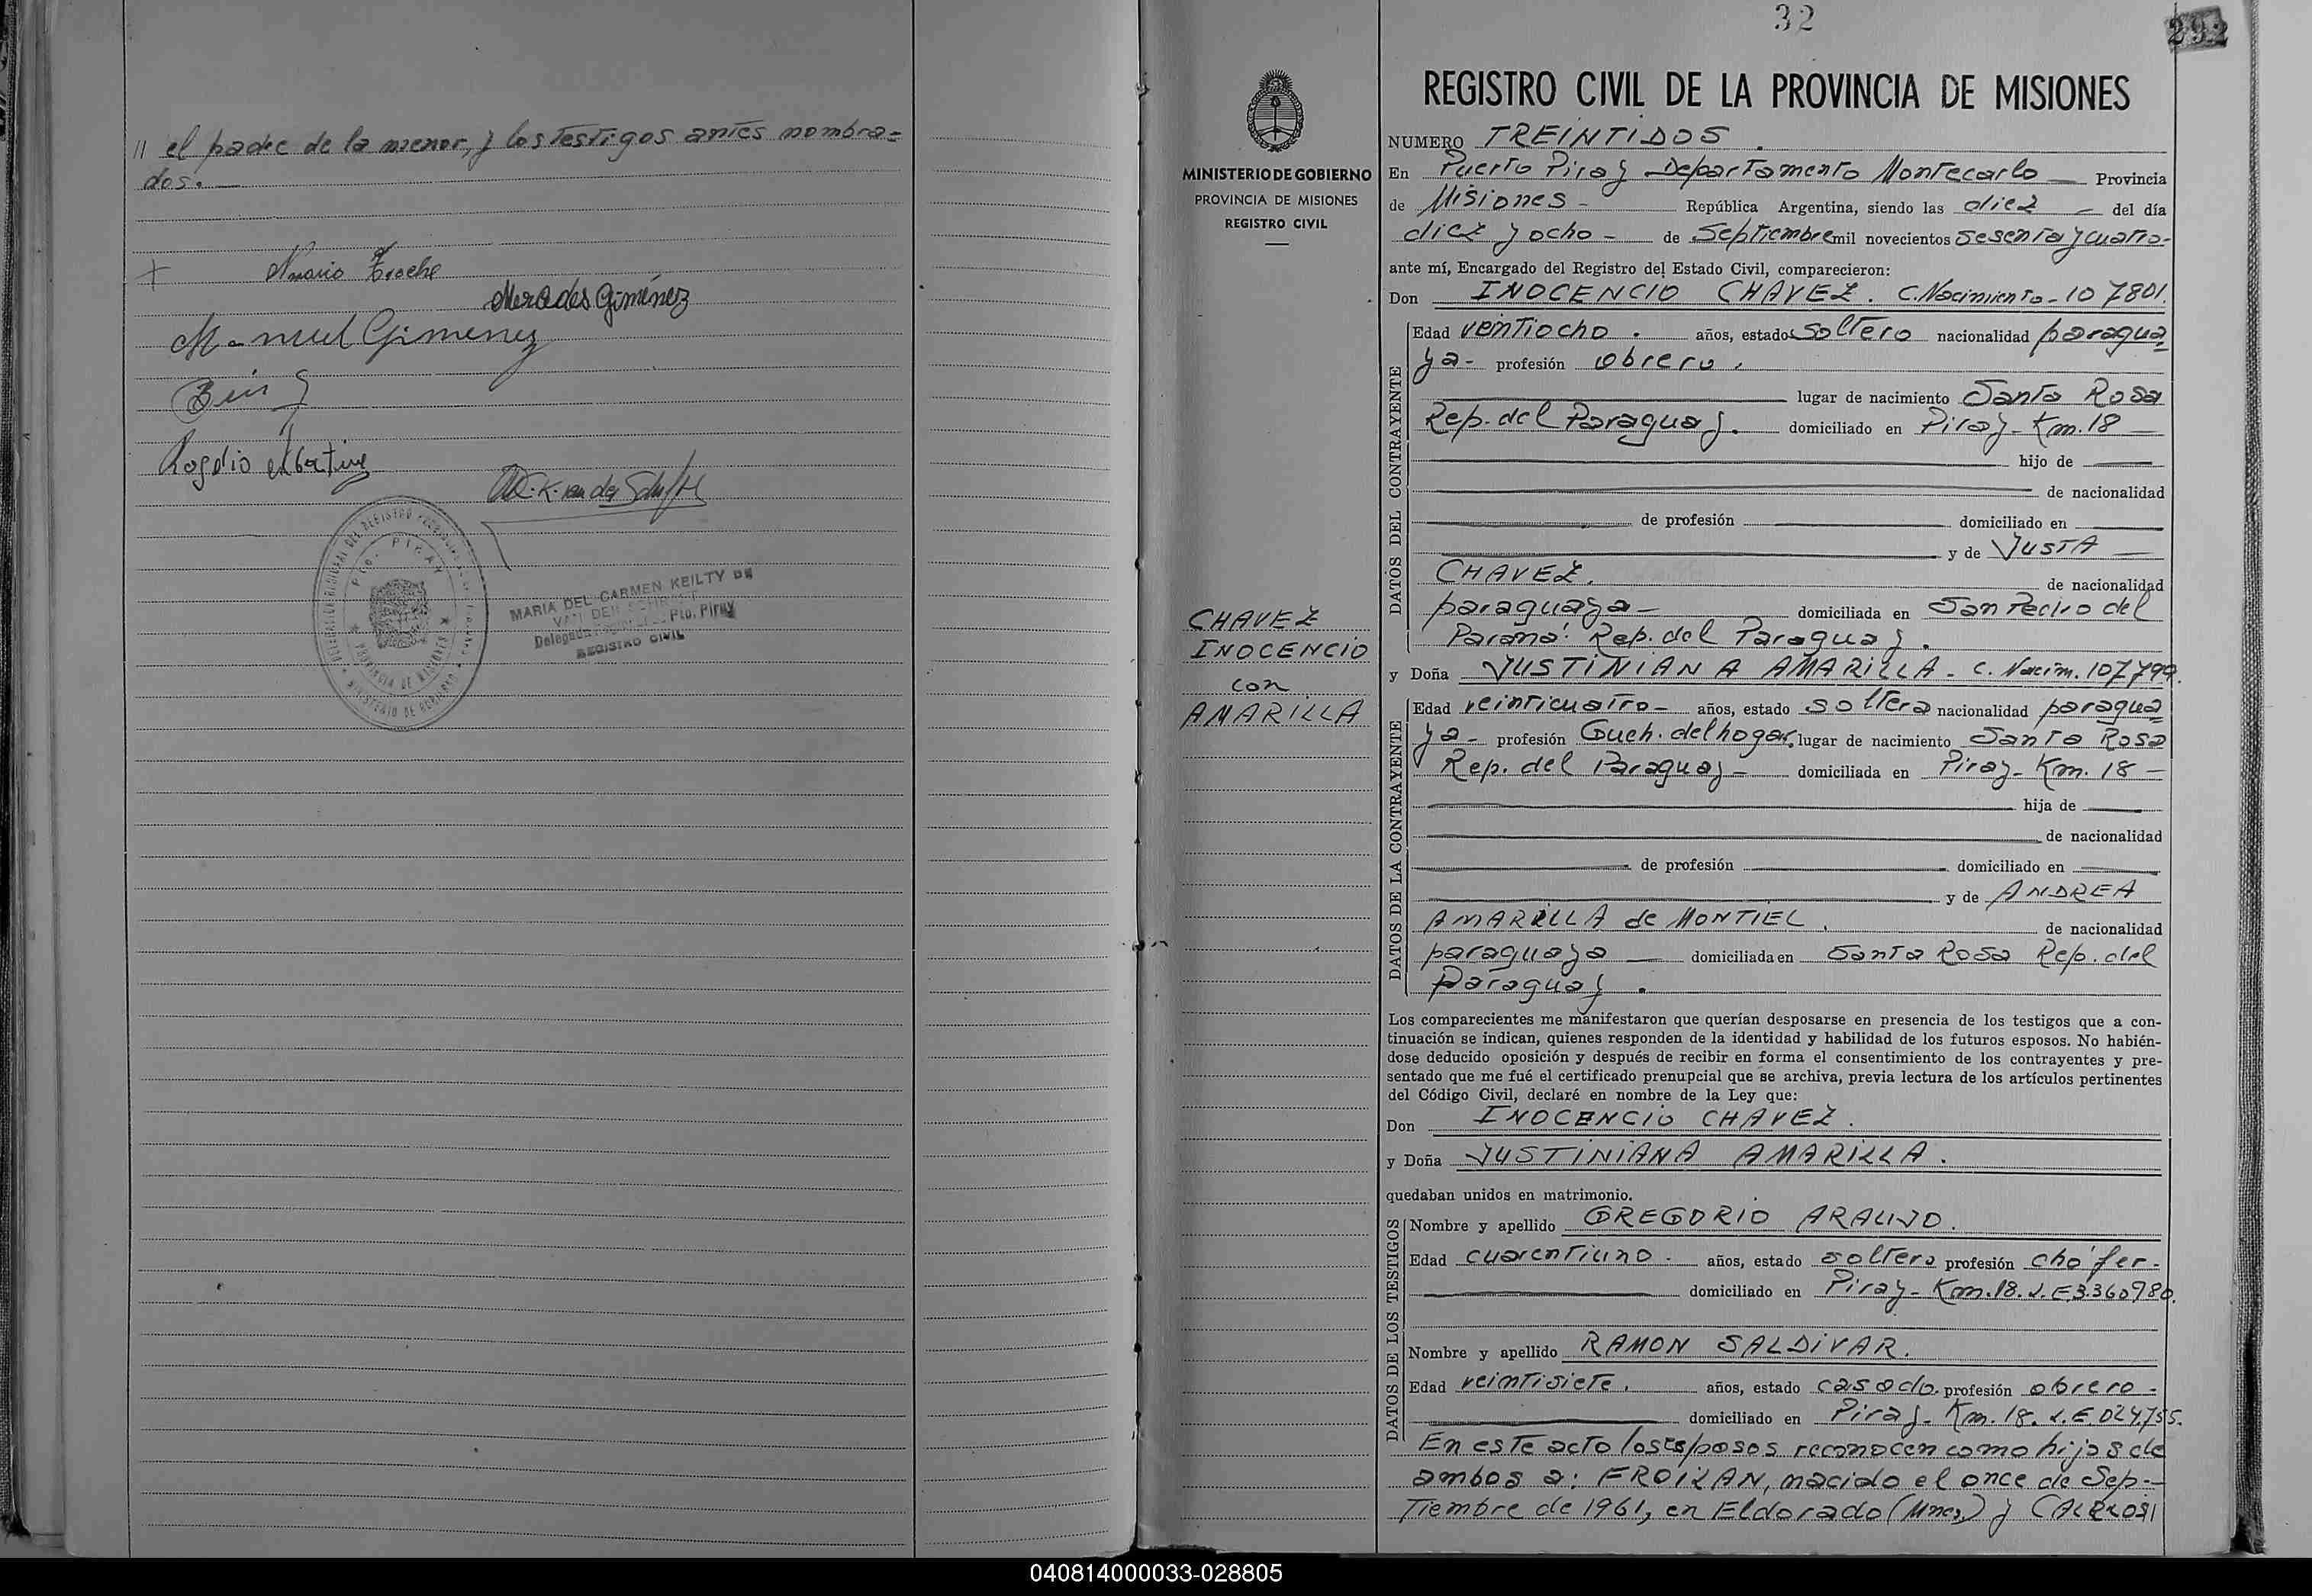 // el padre de la menor, y los testigos antes nombra=
dos.
Mercedes Gimenez
Manuel Gimenez
Rogelio
MARIA DEL CARMEN KEILTY DE
Pto. Piray
REGISTRO CIVIL
32
292
MINISTERIO DE GOBIERNO
PROVINCIA DE MISIONES
REGISTRO CIVIL
CHAVEZ
INOCENCIO
con
AMARILLA
REGISTRO CIVIL DE LA PROVINCIA DE MISIONES
NUMERO TREINTIDOS.
En Puerto Piray Departamento Montecarlo Provincia
de Misiones - República Argentina, siendo las diez - del día
diez y ocho - de Septiembre mil novecientos sesenta y cuatro-
ante mí, Encargado del Registro del Estado Civil, comparecieron:
Don INOCENCIO CHAVEZ. C. Nacimiento - 107801.
DATOS DEL CONTRAYENTE
Edad veintiocho. años, estado soltero nacionalidad paragua
ya- profesión obrero.
lugar de nacimiento Santa Rosa
Rep. del Paraguay. domiciliado en Piray - Km. 18
hijo de
de nacionalidad
de profesión domiciliado en
y de JUSTA
CHAVEZ. de nacionalidad
paraguaya - domiciliada en San Pedro del
Paraná: Rep. del Paraguay.
y Doña JUSTINIANA AMARILLA - C. Nacim. 107799.
DATOS DE LA CONTRAYENTE
Edad veinticuatro - años, estado soltera nacionalidad paragua
ya - profesión Queh. del hogar, lugar de nacimiento Santa Rosa
Rep. del Paraguay - domiciliada en Piray - Km. 18 -
hija de
de nacionalidad
de profesión domiciliado en
y de ANDREA
AMARILLA de MONTIEL. de nacionalidad
paraguaya domiciliada en Santa Rosa Rep. del
Paraguay.
Los comparecientes me manifestaron que querían desposarse en presencia de los testigos que a con-
tinuación se indican, quienes responden de la identidad y habilidad de los futuros esposos. No habién-
dose deducido oposición y después de recibir en forma el consentimiento de los contrayentes y pre-
sentado que me fué el certificado prenupcial que se archiva, previa lectura de los artículos pertinentes
del Código Civil, declaré en nombre de la Ley que:
Don INOCENCIO CHAVEZ.
y Doña JUSTINIANA AMARILLA.
quedaban unidos en matrimonio.
DATOS DE LOS TESTIGOS
Nombre y apellido GREGORIO ARAUJO.
Edad cuarentiuno - años, estado soltero profesión chófer -
domiciliado en Piray - Km. 18. L.E. 3.360980.
Nombre y apellido RAMON SALDIVAR.
Edad veintisiete. años, estado casado. profesión obrero -
domiciliado en Piray - Km. 18. L.E. 024.755.
En este acto los esposos reconocen como hijos de
ambos a: FROILAN, nacido el once de Sep-
tiembre de 1961, en Eldorado (Mnes.) y CARLOS//
040814000033-028805